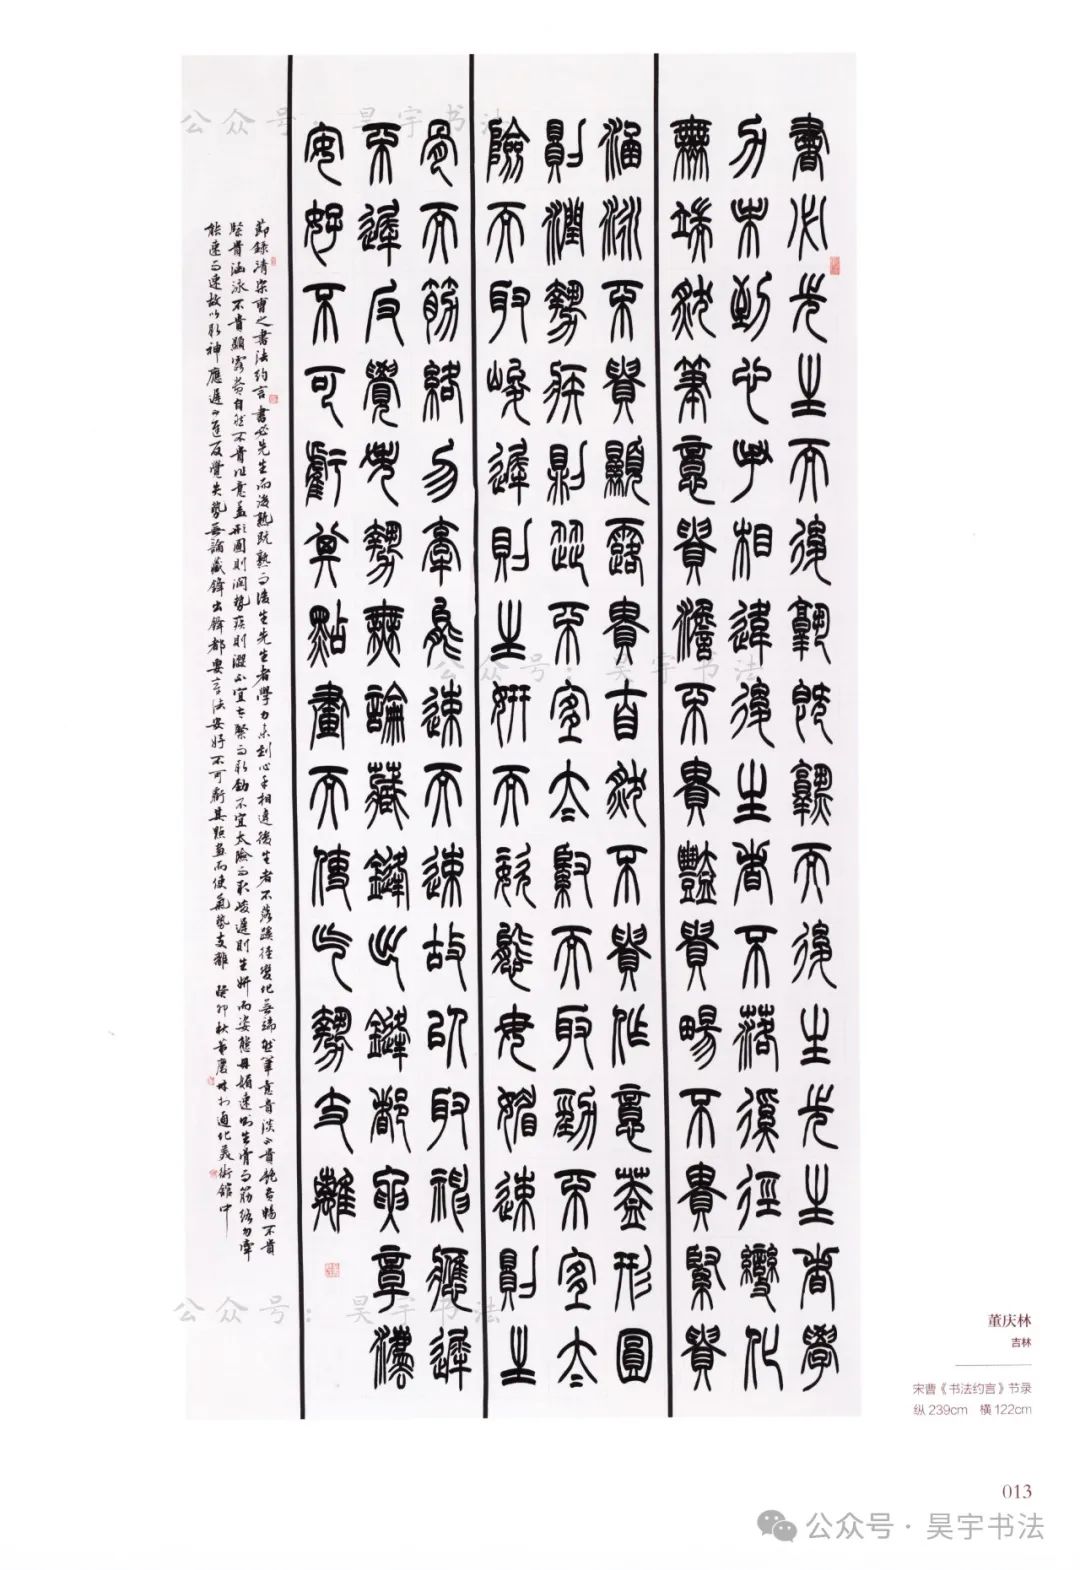 書必先生而後熟既熟而後生先生者學
力未到心手相違後生者不落蹊徑變化
無端然筆意貴澹不貴艷貴暢不貴緊貴
涵泳不貴顯露貴自然不貴作意蓋形圓
則潤勢疾則澀不宜太緊而取勁不宜太
險而取峻遲則生妍而姿態毋媚速則生
骨而筋絡勿牽能速而速故以取神應遲
不遲反覺失勢無論藏鋒出鋒都要章法
安好不可虧其點畫而使氣勢支離
節錄清宋曹之書法約言 書必先生而後熟既熟而後生先生者學力未到心手相違後生者不落蹊徑變化無端然筆意貴淡不貴艷貴暢不貴
緊貴涵泳不貴顯露貴自然不貴作意蓋形圓則潤勢疾則澀不宜太緊而取勁不宜太險而取峻遲則生妍而姿態毋媚速則生骨而筋絡勿牽
能速而速故以取神應遲不遲反覺失勢無論藏鋒出鋒都要章法安好不可虧其點畫而使氣勢支離 癸卯秋董慶林於通化美術館中
公众号：昊宇书法
公众号：昊宇书法
公众号：昊宇书法
董庆林
吉林
宋曹《书法约言》节录
纵239cm 横122cm
013
公众号·昊宇书法